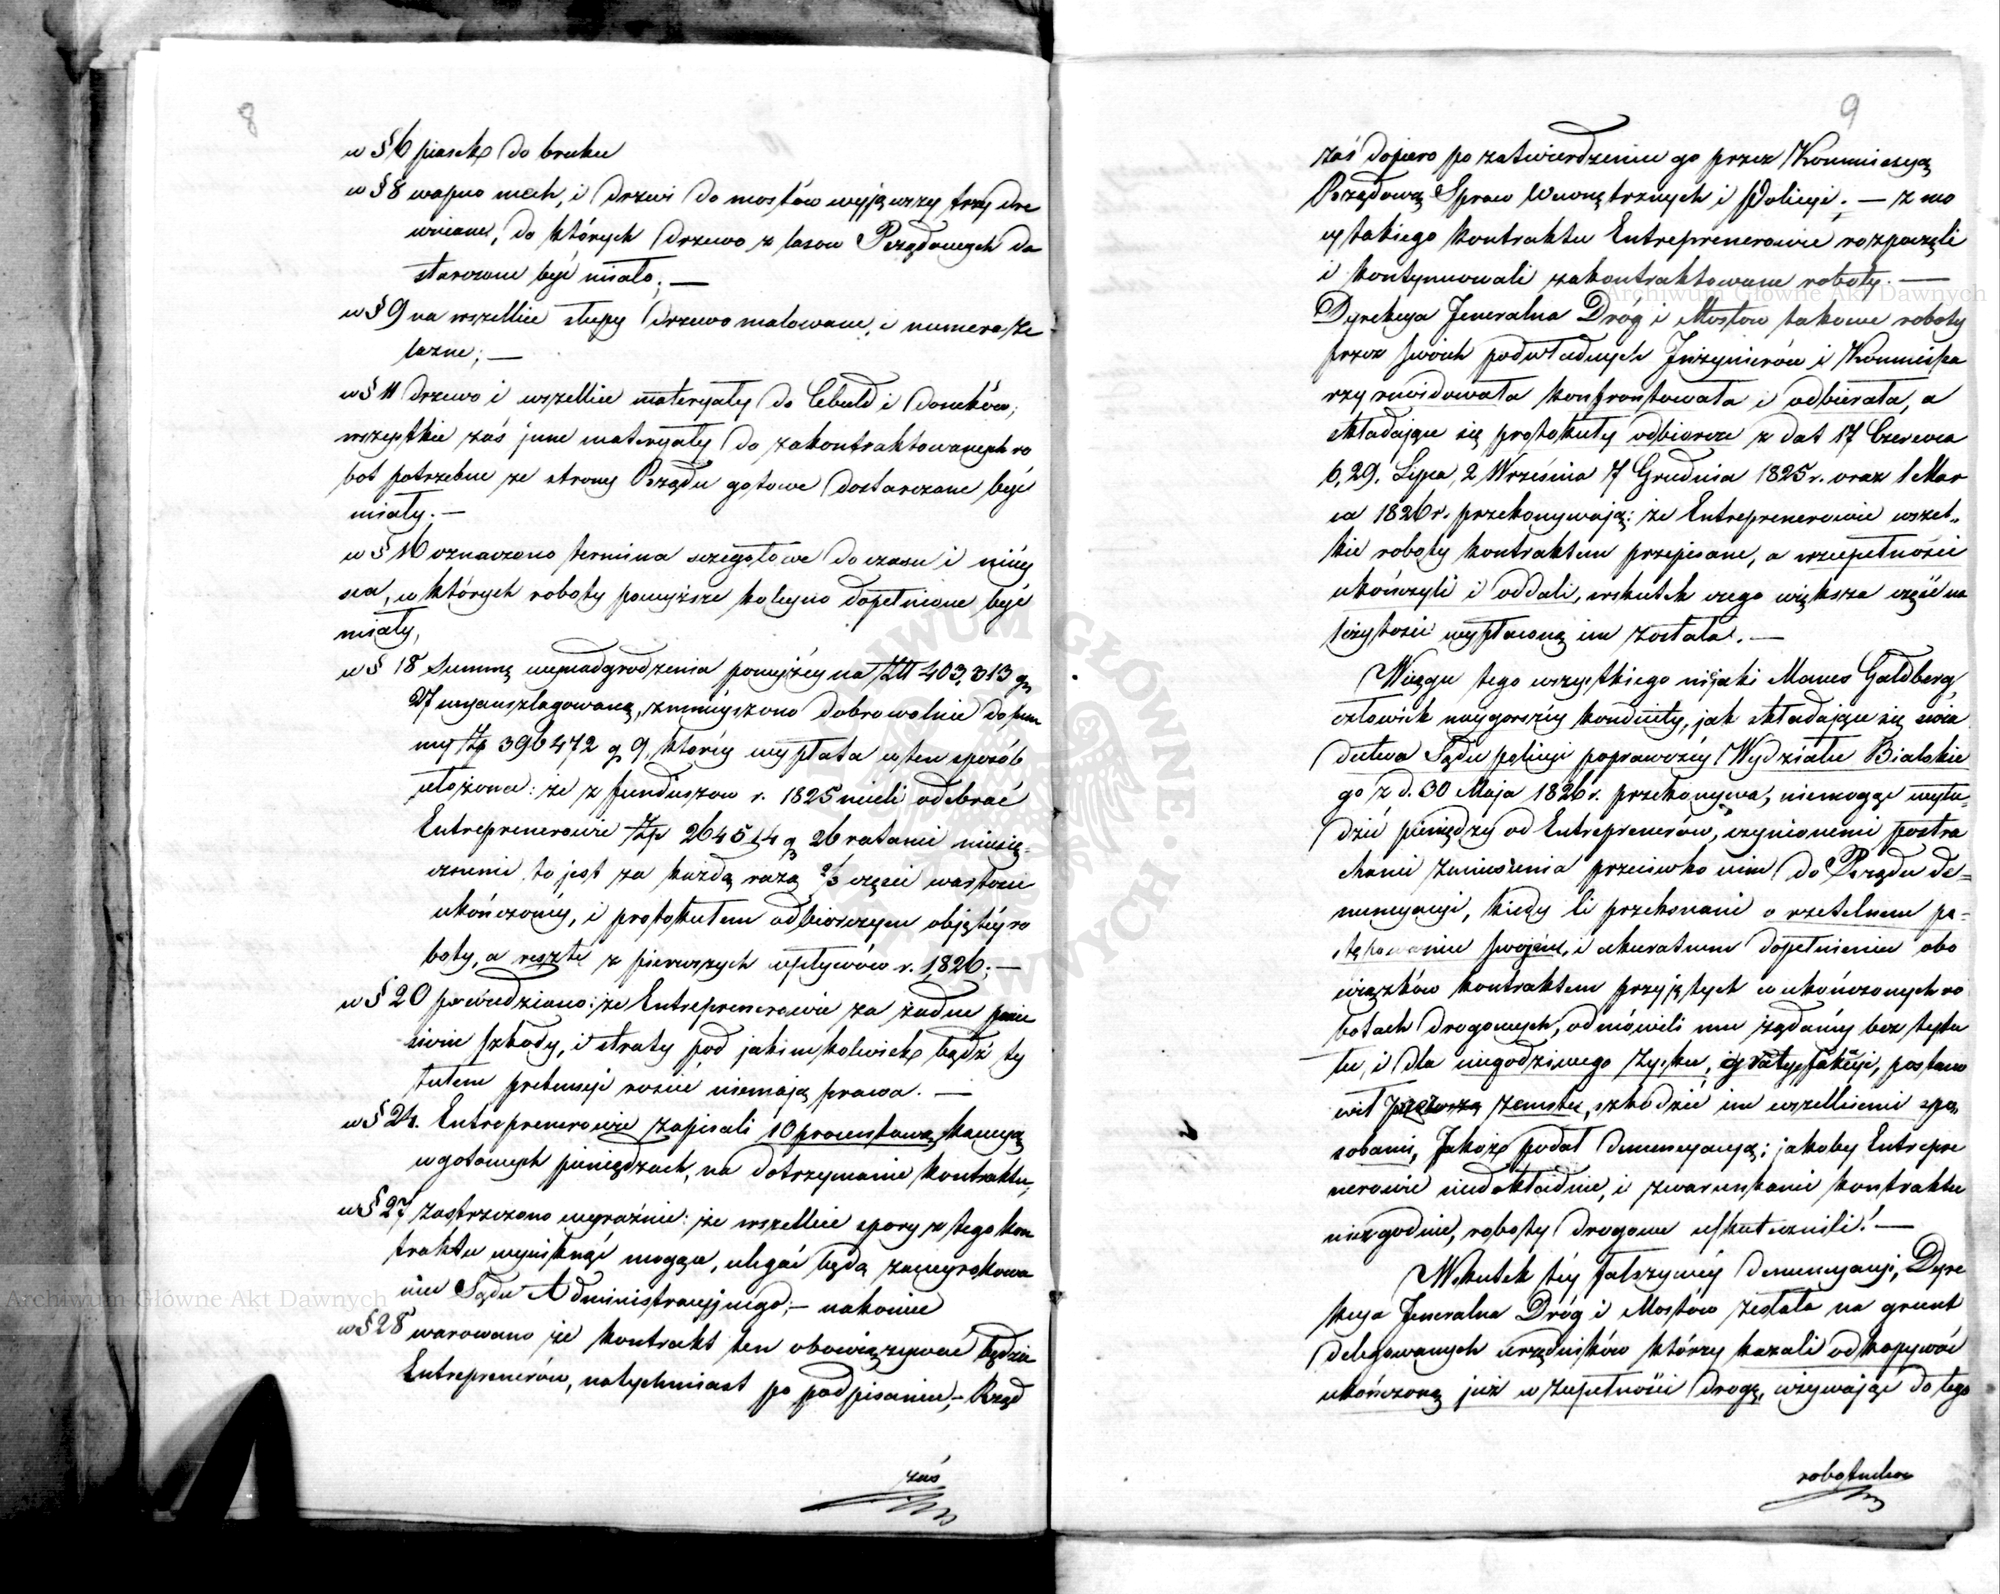 8
w § 6 piasek do bruku
w § 8 wapno mech, i drzwi do mostów wyjąwszy trzy dre
wniane, do których drzewo z lasow Rządowych do
starczone być miało; —
w § 9 na wszelkie słupy drzewo malowane, i numera że
lazne; —
w § 11 drzewo i wszelkie materyały do Cebuld i domków;
wszystkie zaś inne materyały do zakontraktowanych ro
bot potrzebne ze strony Rządu gotowe dostarczane być
miały. —
w § 16 oznaczono termina szczegółowe do czasu i miéy
sca, w których roboty powyższe koleyno dopełnione być
miały,
w § 18 Summę wynadgrodzenia powyżéy na złł 403,313 gr
27 wyanszlagowaną, zmniéyszono dobrowolnie do sum
my złp 396472 g 9, któréy wypłata w ten sposób
ułożona: że z funduszow r. 1825 mieli odebrać
Entreprenerowie złp 264514 g 26 ratami miesię=
cznemi to jest za każdą razą 2/3 części wartości
ukończonéy, i protokułem odbiorczym objętéy ro
boty, a resztę z pierwszych wpływów r. 1826; —
w § 20 powiedziano: że Entreprenerowie za żadne ponie
sione szkody, i straty pod jakimkolwiek bądź ty
tułem pretensyi rościć niemają prawa. —
w § 24. Entreprenerowie zapisali 10 procentową kaucyą
w gotowych pieniędzach, na dotrzymanie kontraktu;
w § 27 zastrzeżono wyraźnie: że wszelkie spory z tego kon
traktu wyniknąć mogące, ulegać będą zawyrokowa
niu Sądu Administracyjnégo; — nakoniec
w § 28 warowano że kontrakt ten obowiązywać będzie
Entreprenerów, natychmiast po podpisaniu; — Rząd
zaś
9
zaś dopiero po zatwierdzeniu go przez Kommissyą
Rządową Spraw Wewnętrznych i Policyi. — Z mo
cy takiego kontraktu Entreprenerowie rozpoczęli
i kontynuowali zakontraktowane roboty. —
Dyrekcya Jeneralna Dróg i Mostow takowe roboty
przez swoich podwładnych Inżynierów i Kommissa
rzy rewidowała konfrontowała i odbierała, a
składające się protokuły odbiorcze z dat 17 Czerwca
6, 29. Lipca, 2 Września 7 Grudnia 1825 r. oraz 1 Mar
ca 1826 r. przekonywają: że Entreprenerowie wszel„
kie roboty kontraktem przepisane, a wzupełności
ukończyli i oddali, wskutek czego większa część na
leżytości wypłaconą im została. —
Wciągu tego wszystkiego niéjaki Moneo Goldberg
człowiek naygorszéy konduity, jak składające się świa
dectwa Sądu policyi poprawczéy Wydziału Bialskie
go z d. 30 Maja 1826 r. przekonywa, niemogąc wyłu=
dzić pieniędzy od Entreprenerów, czynionemi postra
chami zaniesienia przeciwko nim do Rządu de=
nuncyacyi, kiedy Ci przekonani o rzetelnem po=
stępowaniu swojém, i akuratnem dopełnieniu obo
wiązków kontraktem przyjętych w ukończonych ro
botach drogowych, odmówili mu żądanéy bez tytu
łu, i dla niegodziwego zysku, gratyfikacyi, postano
wił zemstę, szkodzić im wszelkiemi spo
sobami, Jakoż podał denuncyacyą; jakoby Entrepre
nerowie niedokładnie, i zwarunkami kontraktu
niezgodnie, roboty drogowe uskutecznili! —
Wskutek téy fałszywéy denuncyacyi, Dyre
kcya Jeneralna Dróg i Mostów zesłała na grunt
delegowanych urzędników którzy kazali odkopywać
ukończoną już w zupełności drogę, używając do tego
robotników
Archiwum Główne Akt Dawnych
Archiwum Główne Akt Dawnych